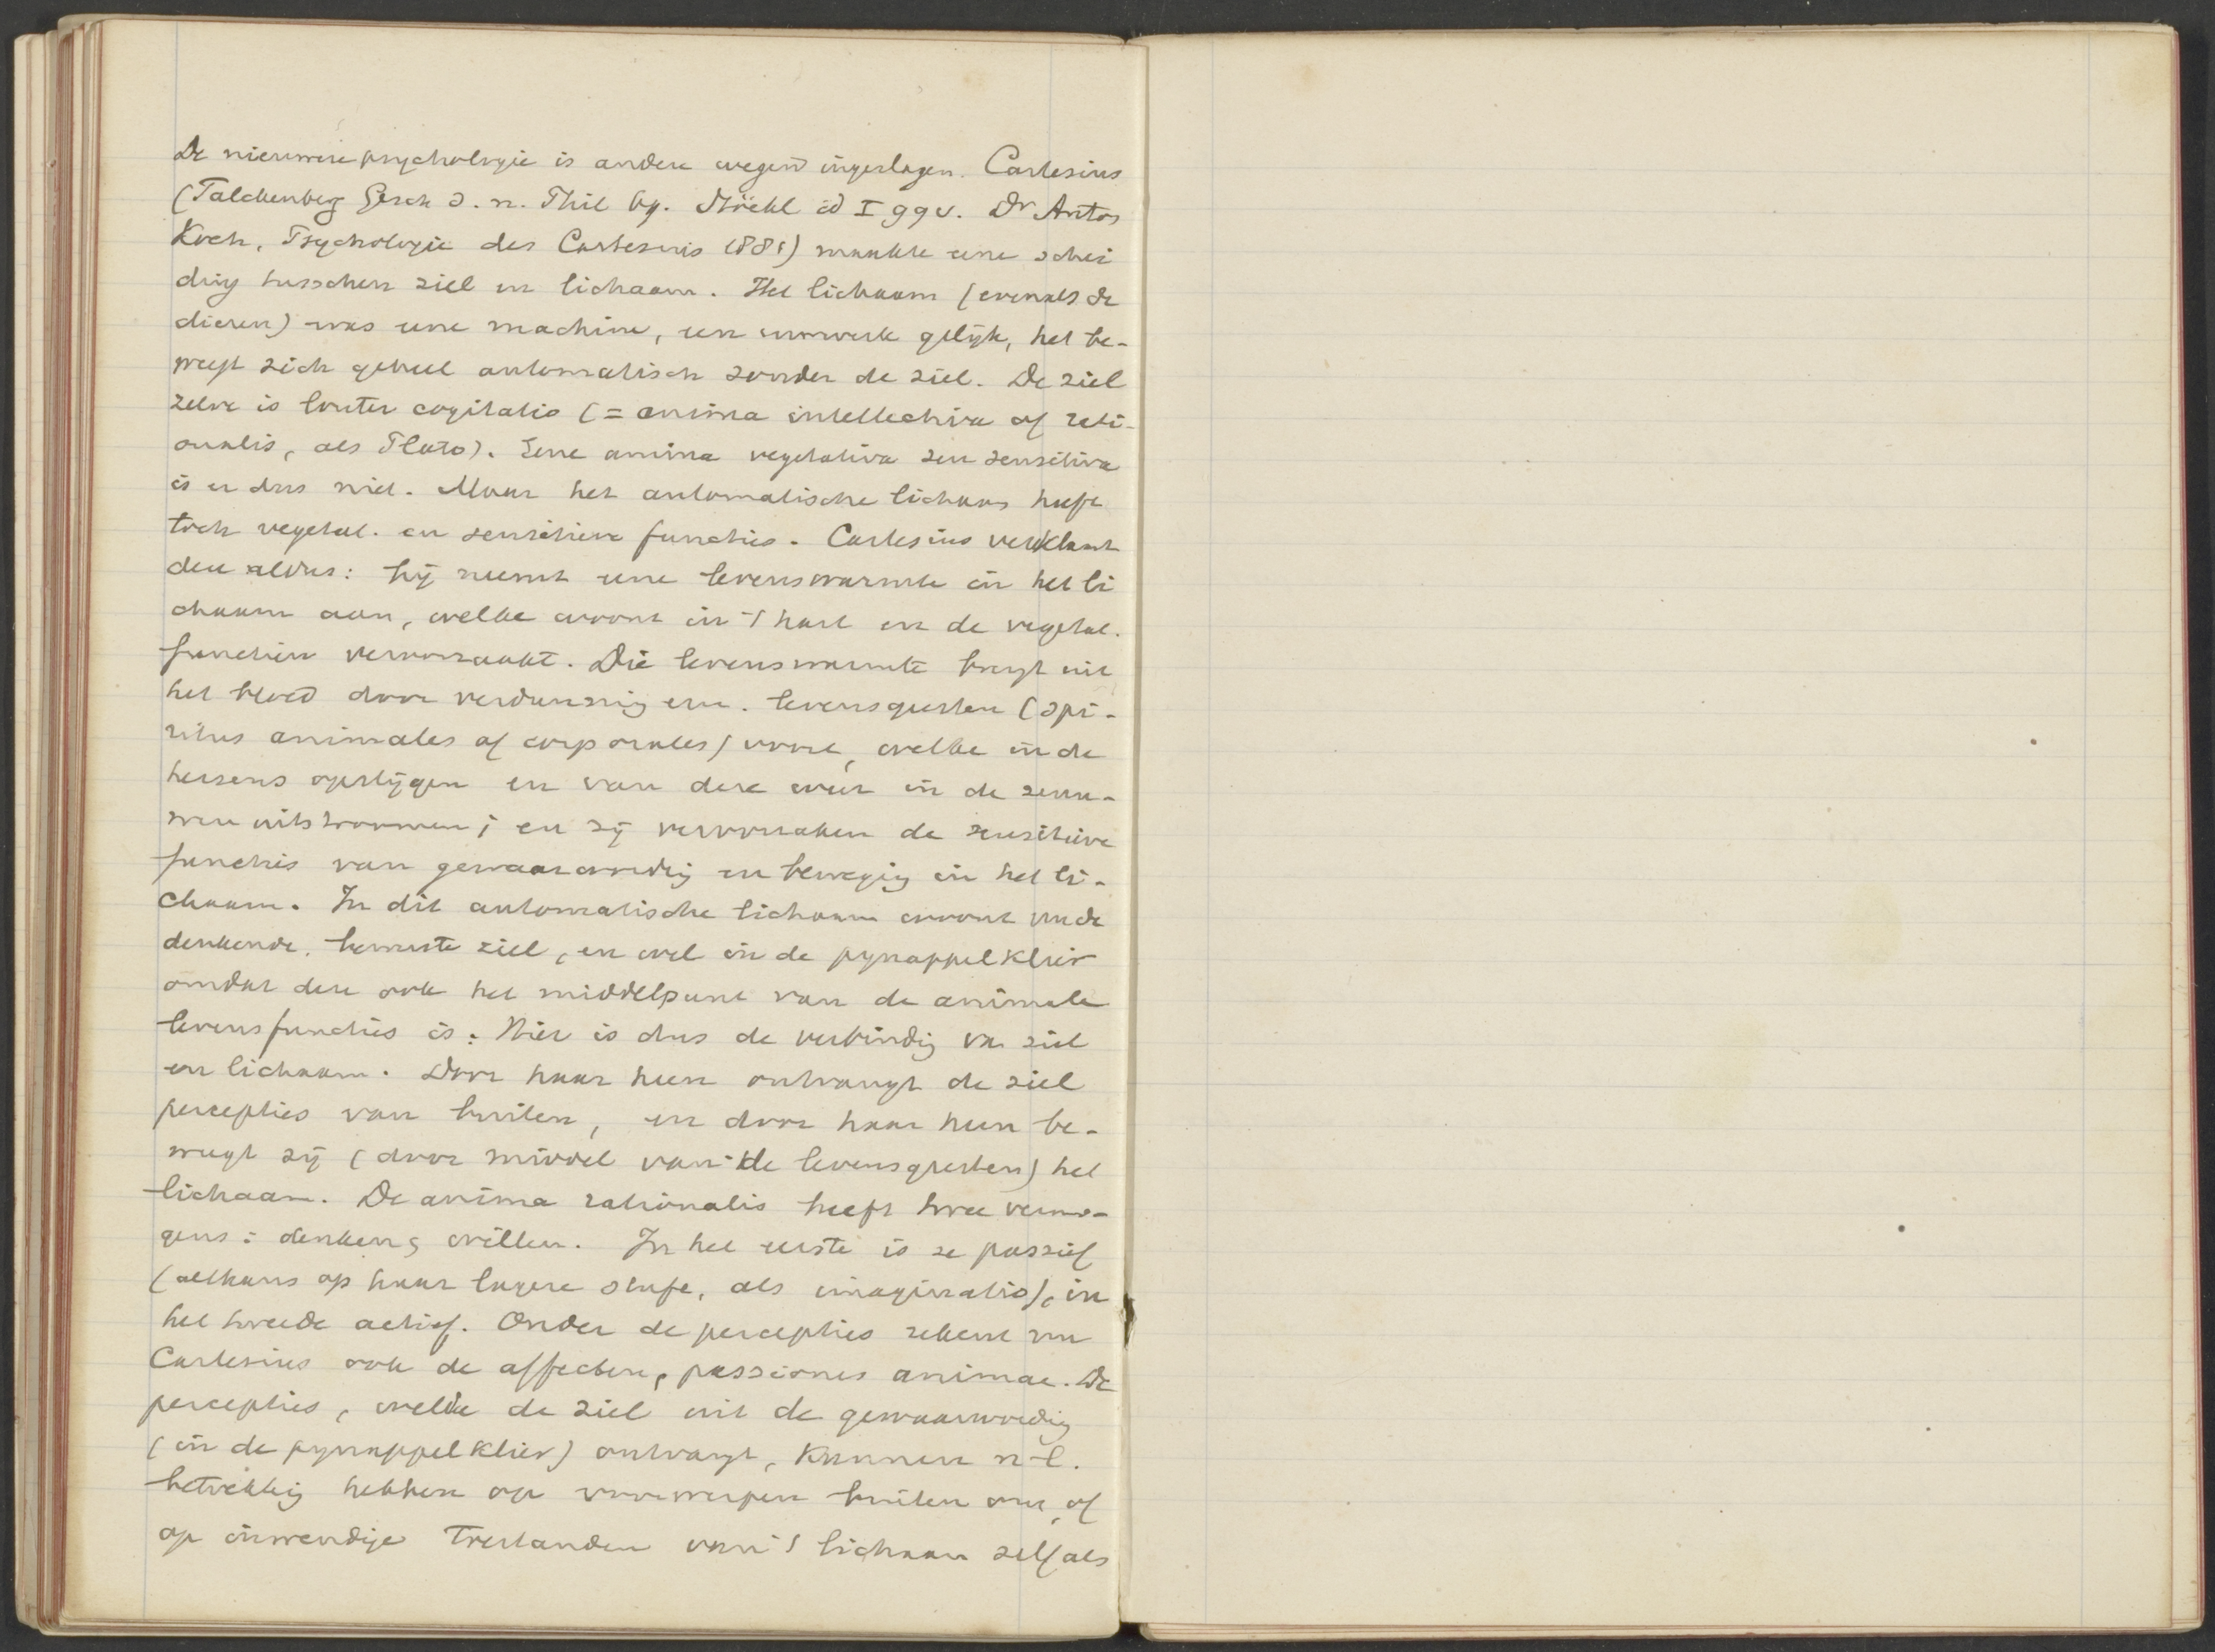 De nieuwere psychologie is andere wegen ingeslagen. Cartesius
(Falckenberg Gesch d. n. Phil bg. Stöckl id I 99 v. Dr Anton
Koch, Psychologie des Cartesius 1881) maakte eene schei
ding tusschen ziel en lichaam. Het lichaam (evenals de
dieren) was eene machine, een uurwerk gelijk, het be-
weegt zich geheel automatisch zonder de ziel. De ziel
zelve is louter cogitatio (= anima intellectiva of rati-
onalis, als Plato). Eene anima vegetativa seu sensitiva
is er dus niet. Maar het automatische lichaam heeft
toch vegetat. en sensitieve functies. Cartesius verklaart
deze aldus: hij neemt eene levenswarmte in het li
chaam aan, welke woont in 't hart en de vegetat.
functiën veroorzaakt. Die levenswarmte brengt uit
het bloed door verdunning enz. levensgeesten (spi-
ritus animales of corporales) voort, welke in de
hersens opstijgen en van deze weer in de zenu-
wen uitstroomen; en zij veroorzaken de sensitieve
functies van gewaarwording en beweging in het li-
chaam. In dit automatische lichaam woont nu de
denkende, bewuste ziel, en wel in de pynappelklier
omdat deze ook het middelpunt van de animale
levensfuncties is. Hier is dus de verbinding van ziel
en lichaam. Door haar heen ontvangt de ziel
percepties van buiten, en door haar heen be-
weegt zij (door middel van de levensgeesten) het
lichaam. De anima rationalis heeft twee vermo-
gens: denken, willen. In het eerste is ze passief
(althans op haar lagere stufe, als imaginatio), in
het tweede actief. Onder de percepties rekent nu
Cartesius ook de affecten, passiones animae. De
percepties, welke de ziel uit de gewaarwording
(in de pynappelklier) ontvangt, kunnen n.l.
betrekking hebben op voorwerpen buiten ons, of
op inwendige toestanden van 't lichaam zelf als